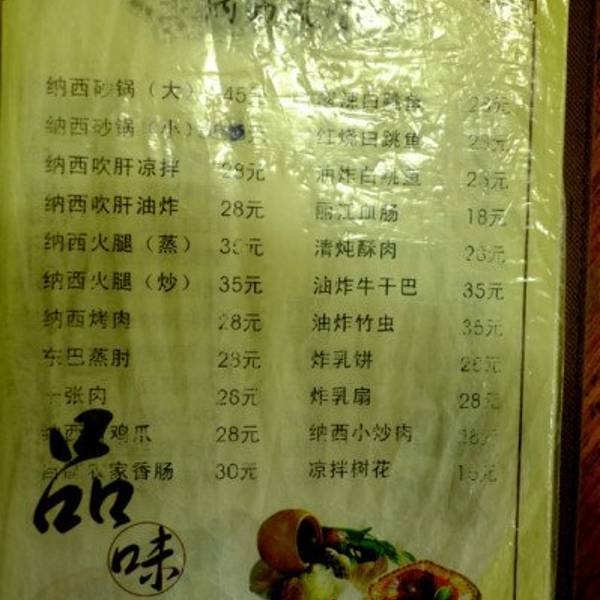 纳西砂锅（大） 45元
纳西砂锅（小）
纳西吹肝凉拌 28元
纳西吹肝油炸 28元
纳西火腿（蒸）
纳西火腿（炒） 35元
纳西烤肉 28元
东巴蒸肘 28元
张肉 28元
纳西 鸡爪 28元
家香肠 30元
白跳鱼
红烧白跳鱼
油炸白跳鱼
丽江血肠 18元
清炖酥肉
油炸牛干巴 35元
油炸竹虫 35元
炸乳饼
炸乳扇 28元
纳西小炒肉
凉拌树花
品
味